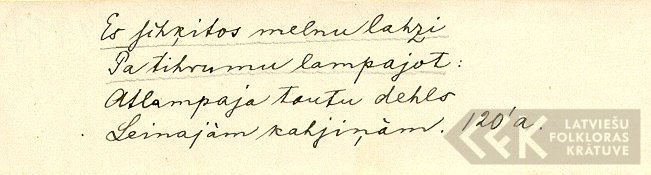 Es sihkitos melnu lahzi
Pa tihrumu lampajot:
Atlampaja tautu dehls
Leinajām kahjiņām. 120'a.
LATVIEŠU
FOLKLORAS
KRĀTUVE